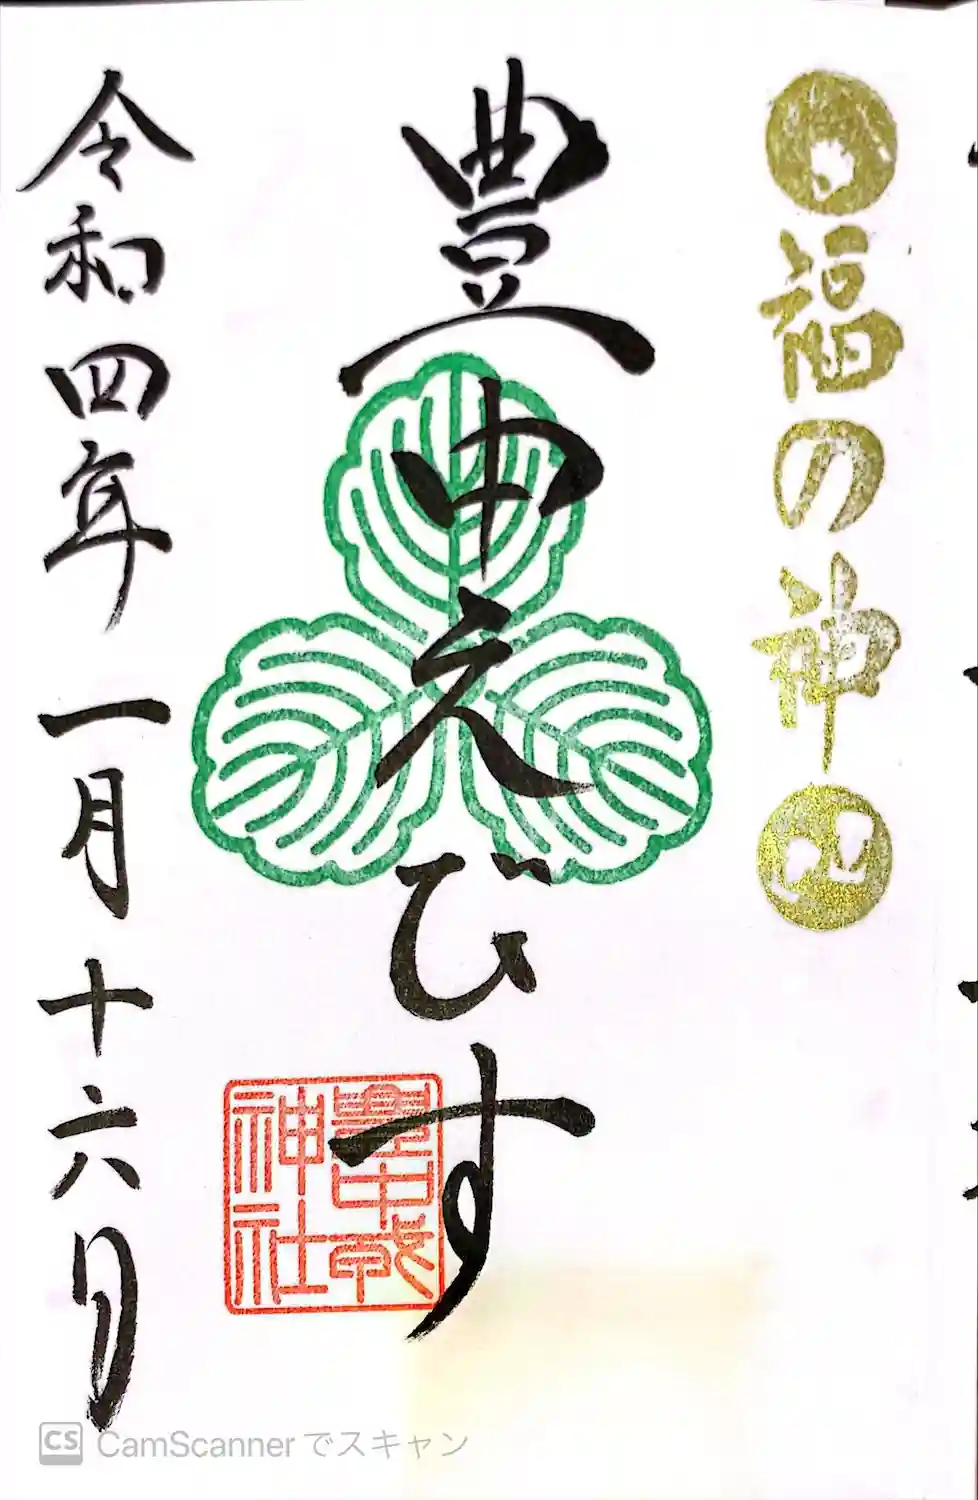 福の神
豊中えびす
豊中戎
神社
令和四年一月十六日
CS CamScanner でスキャン